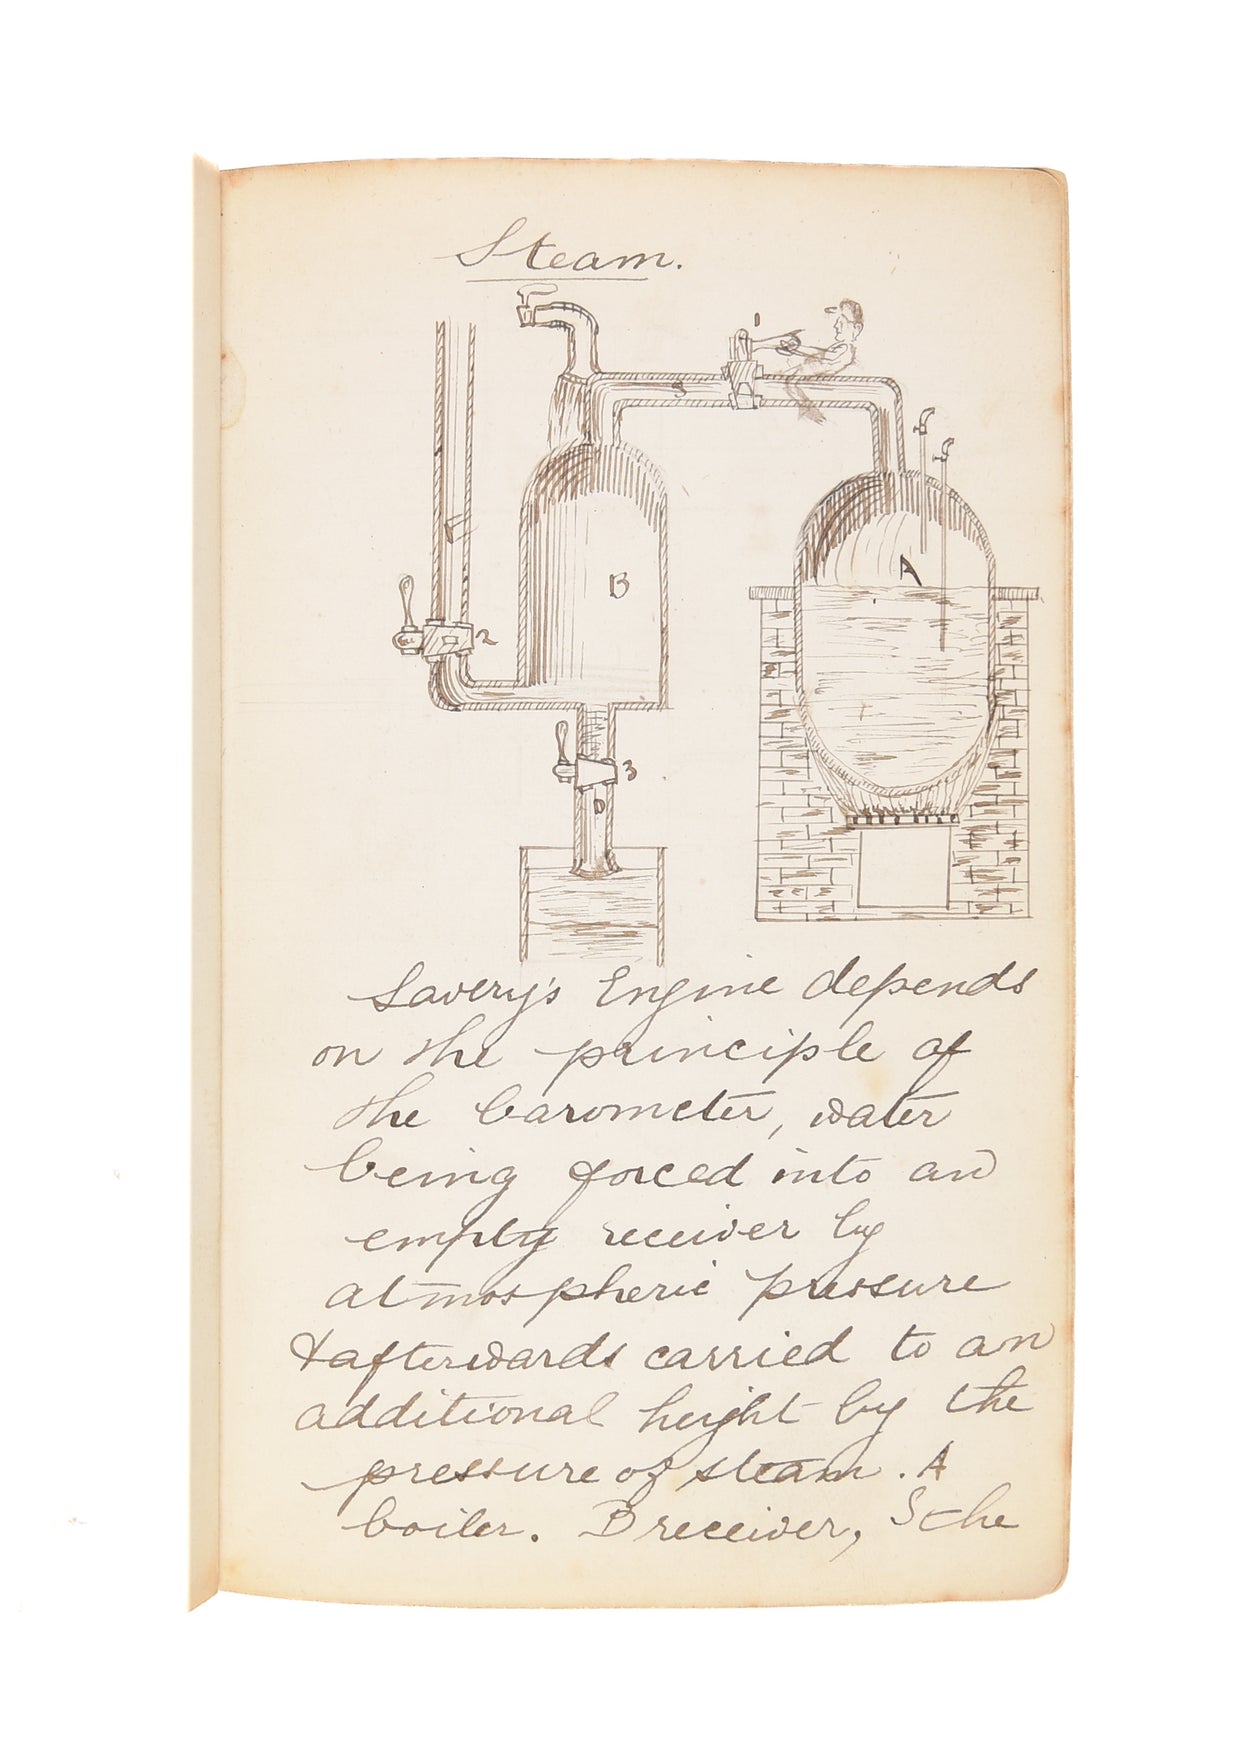 Steam.
1
S
A
B
2
3
D
Savery's Engine depends
on the principle of
the barometer, water
being forced into an
empty receiver by
atmospheric pressure
& afterwards carried to an
additional height by the
pressure of steam. A
boiler. B receiver, S the